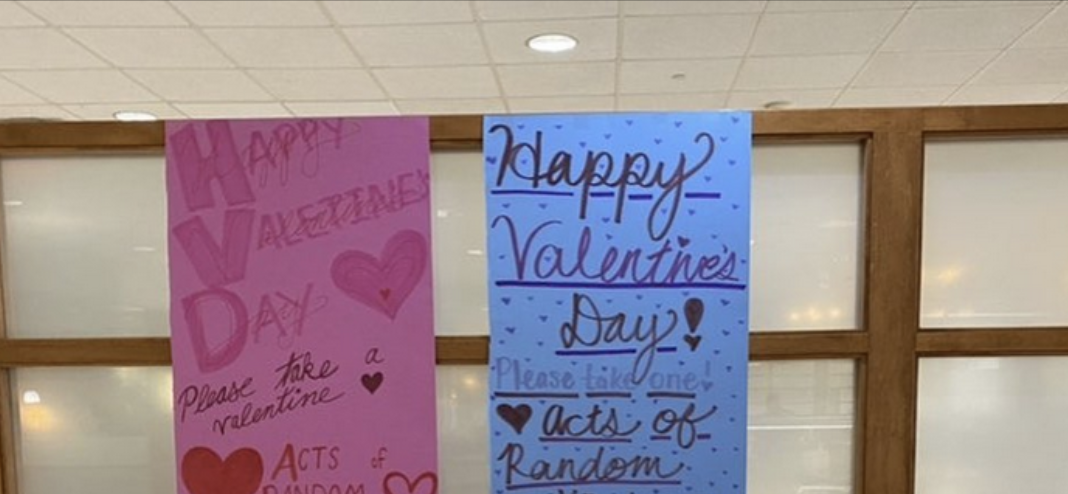 HAPPY
VALENTINES
DAY
Please take a
valentine
ACTS of
RANDOM
Happy
Valentine's
Day!
Please take one!
acts of
Random